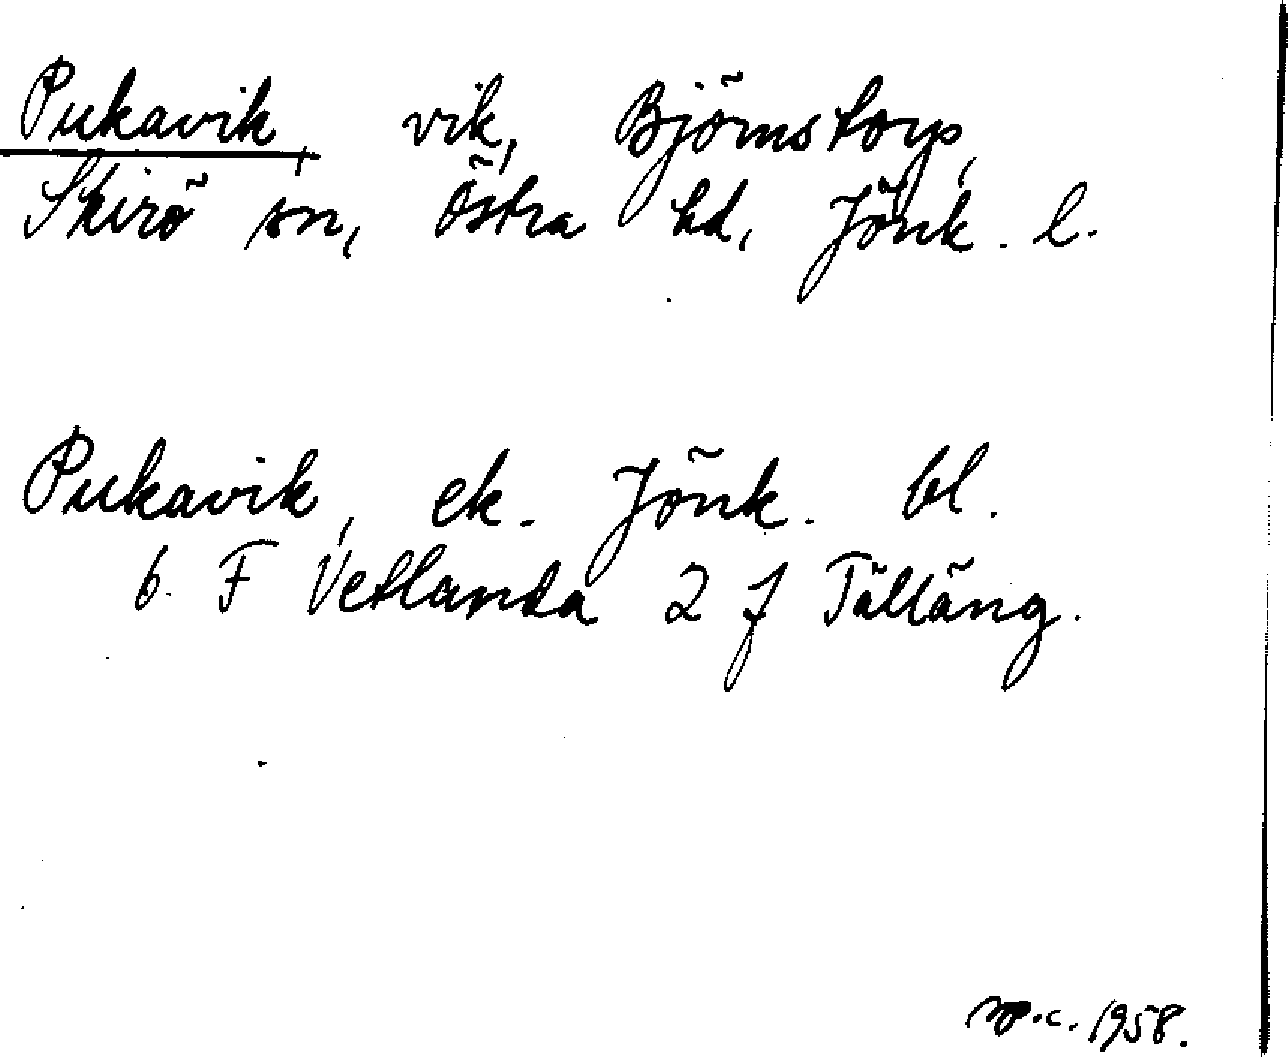 Pukavik, vik, Björnstorp,
Skirö sn, Östra hd, Jönk. l.
Pukavik, ek. Jönk. bl.
6 F Vetlanda 2 f Tälläng.
1958.